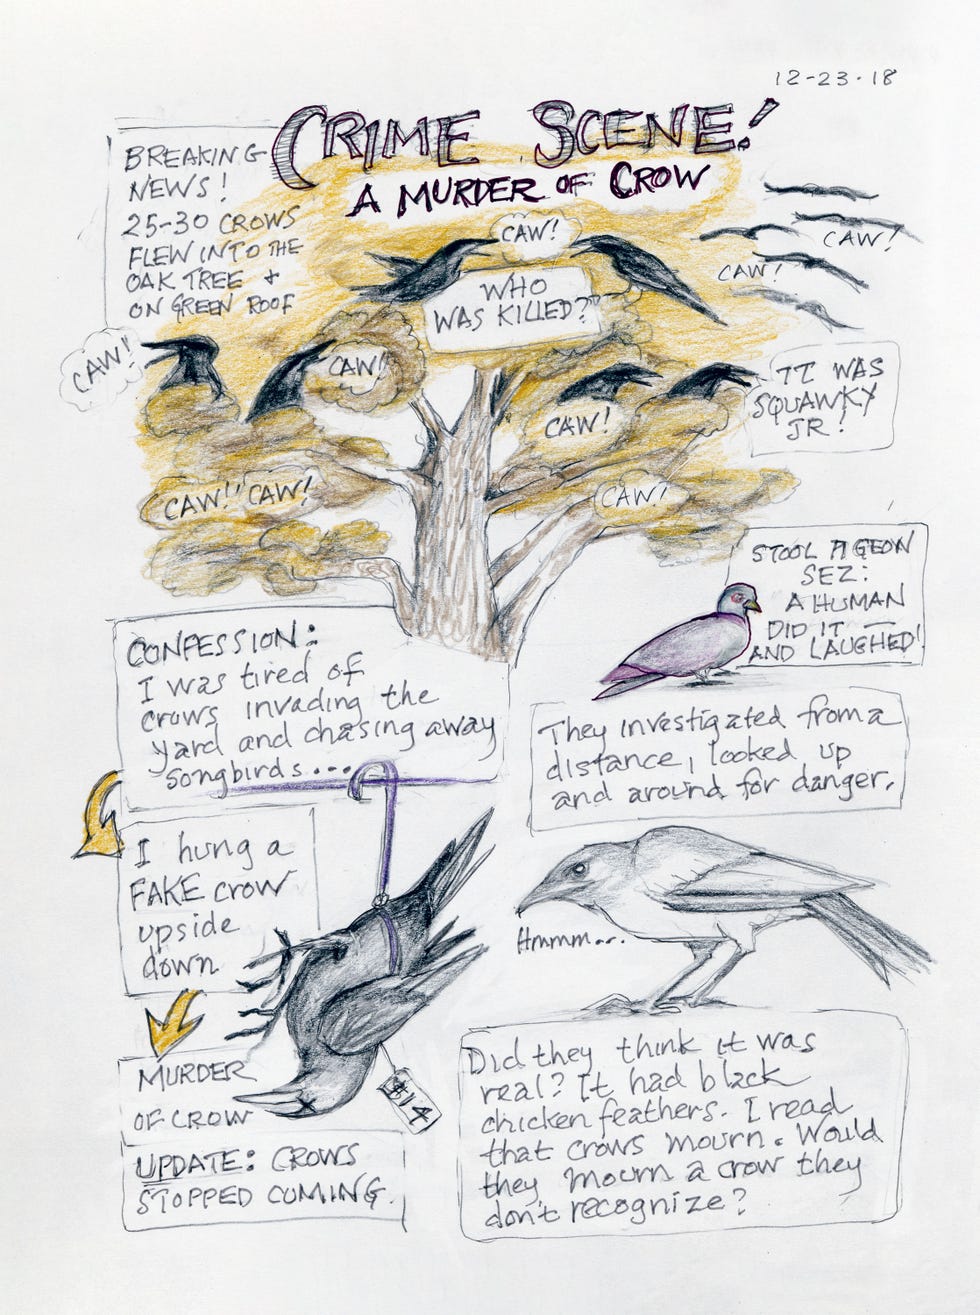 12-23-18
CRIME SCENE!
A MURDER OF CROW
BREAKING
NEWS!
25-30 CROWS
FLEW INTO THE
OAK TREE &
ON GREEN ROOF
CAW!
CAW!
CAW!
WHO
WAS KILLED?
CAW!
CAW!
IT WAS
SQUAWKY
JR!
CAW!
CAW!" "CAW!
CAW!
STOOL PIGEON
SEZ:
A HUMAN
DID IT —
AND LAUGHED!
CONFESSION:
I was tired of
crows invading the
yard and chasing away
songbirds...
They investigated from a
distance, looked up
and around for danger.
I hung a
FAKE crow
upside
down
Hmmm...
MURDER
OF CROW
$14
UPDATE: CROWS
STOPPED COMING.
Did they think it was
real? It had black
chicken feathers. I read
that crows mourn. Would
they mourn a crow they
don't recognize?